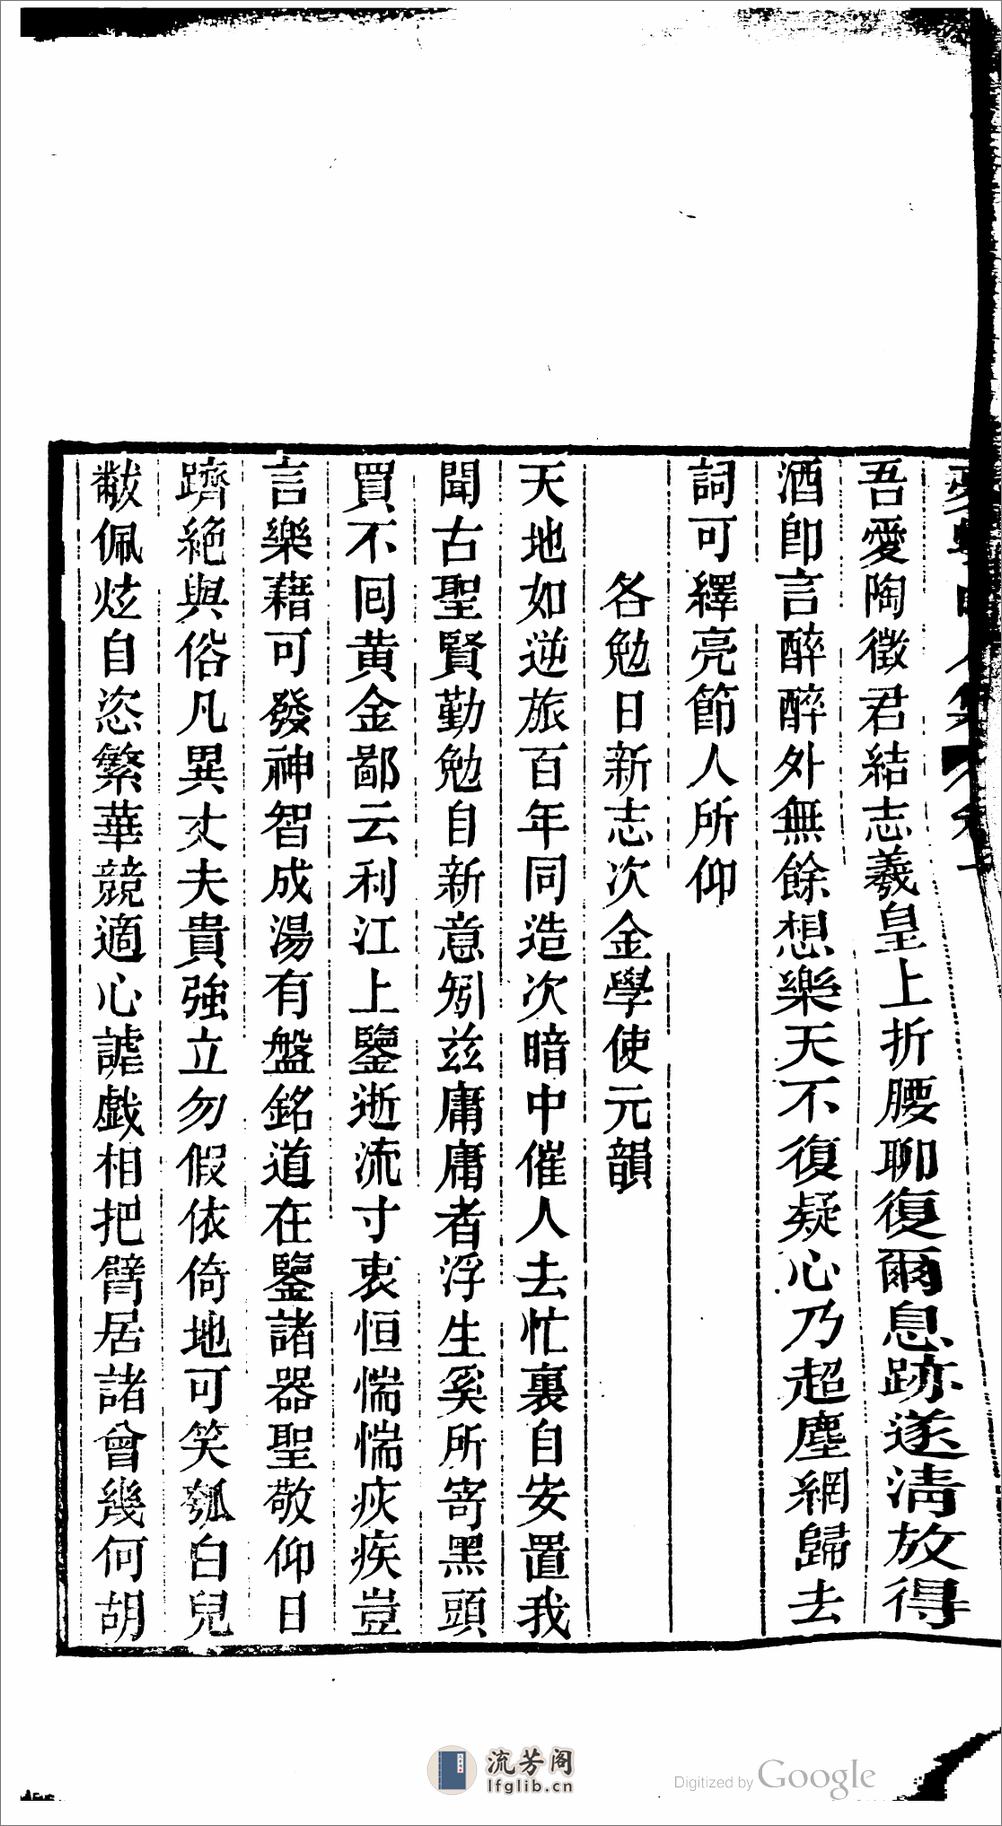 吾愛陶徵君結志羲皇上折腰聊復爾息跡遂淸放得
酒卽言醉醉外無餘想樂天不復疑心乃超塵網歸去
詞可繹亮節人所仰
各勉日新志次金學使元韻
天地如逆旅百年同造次暗中催人去忙裏自安置我
聞古聖賢勤勉自新意矧茲庸庸者浮生奚所寄黑頭
買不囘黄金鄙云利江上鑒逝流寸衷恒惴惴疢疾豈
言樂藉可發神智成湯有盤銘道在鑒諸器聖敬仰日
躋絶與俗凡異丈夫貴強立勿假依倚地可笑瓠白兒
黻佩炫自恣繁華競適心謔戯相把臂居諸曾幾何胡
流芳阁
lfglib.cn
Digitized by Google